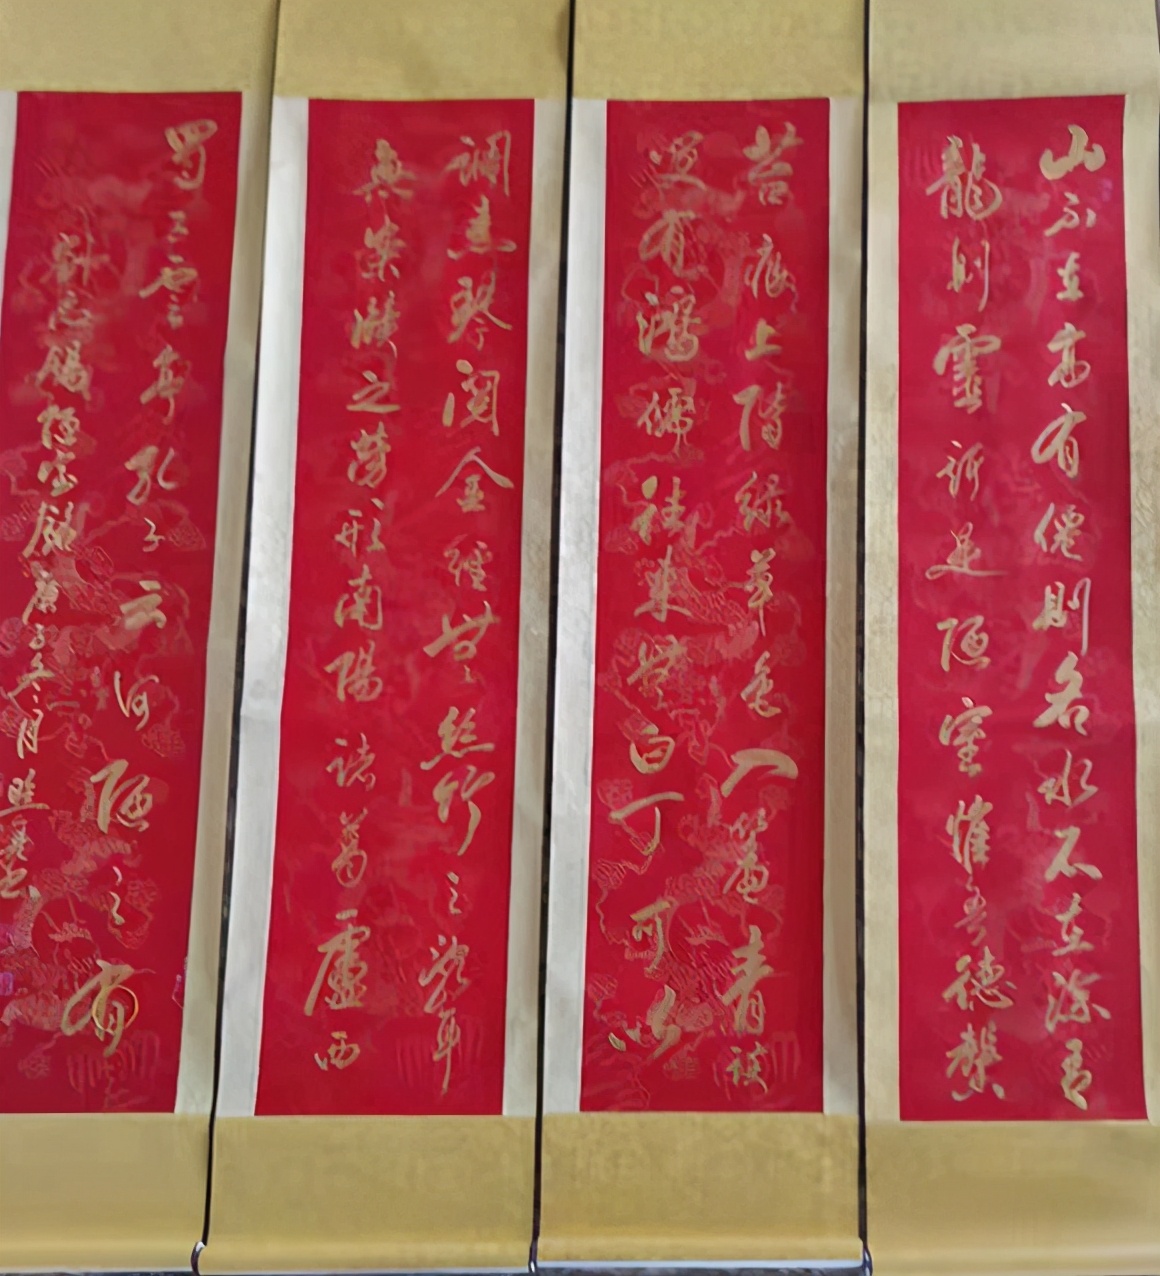 山不在高有僊則名水不在深有
龍則靈斯是陋室惟吾德馨
苔痕上階綠草色入簾青談
笑有鴻儒往來無白丁可以
調素琴閱金經無絲竹之亂耳
無案牘之勞形南陽諸葛廬西
蜀子雲亭孔子云何陋之有
劉禹錫陋室銘庚子冬月